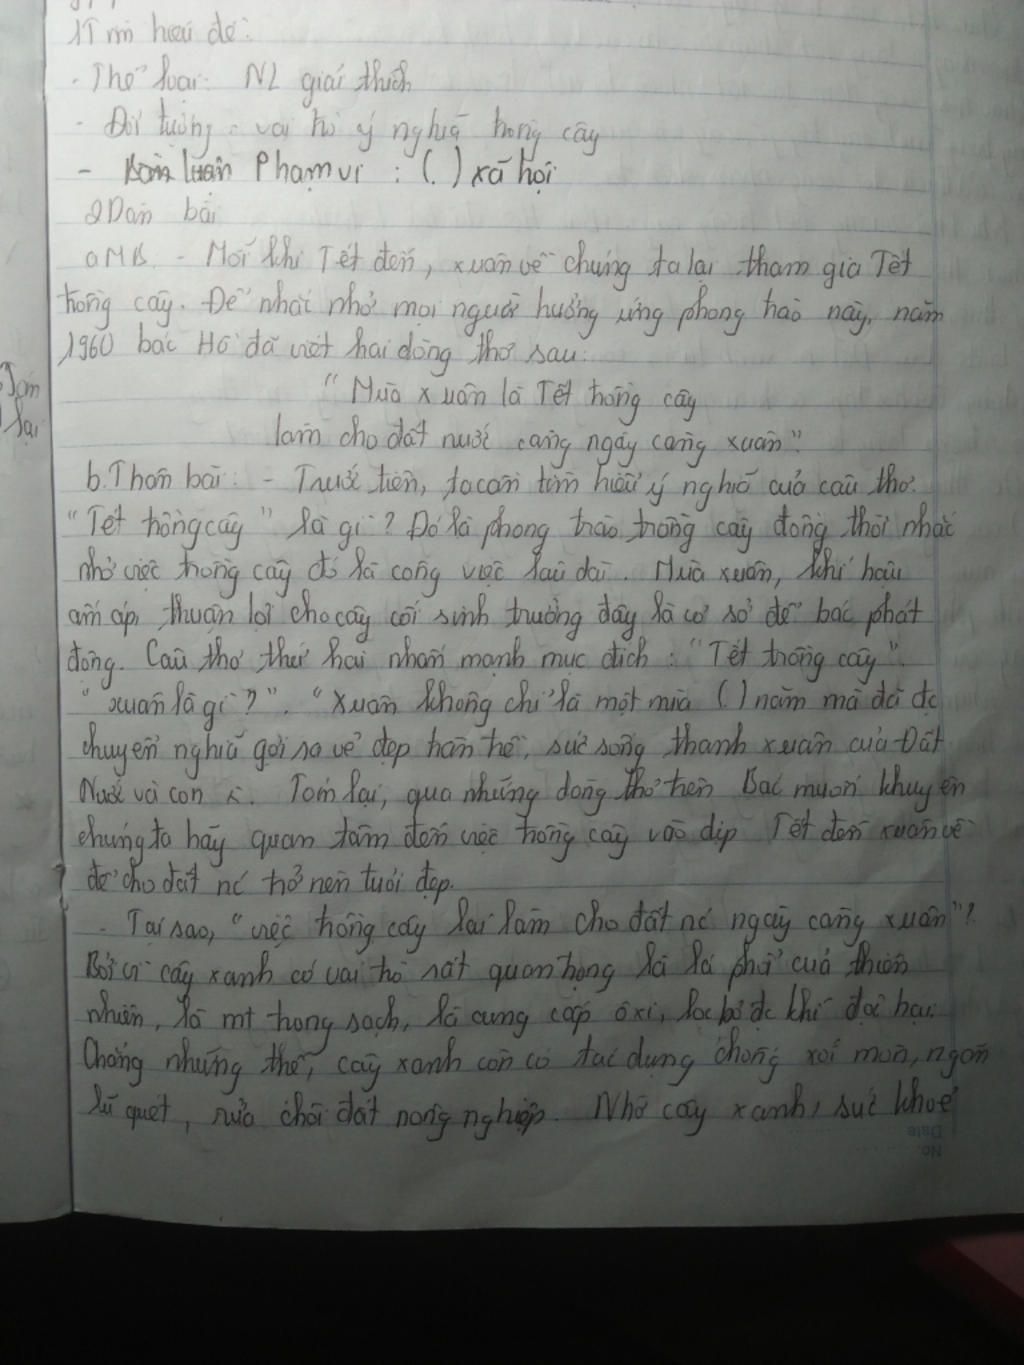 1 Tìm hiểu đề:
- Thể loại: NL giải thích
- Đối tượng: vai trò ý nghĩa trồng cây
- luận Phạm vi : (.) xã hội
2 Dàn bài
a MB. - Mỗi khi Tết đến, xuân về chúng ta lại tham gia Tết
trồng cây. Để nhắc nhở mọi người hưởng ứng phong trào này, năm
1960 bác Hồ đã viết hai dòng thơ sau:
Tóm
"Mùa xuân là Tết trồng cây
lại
làm cho đất nước càng ngày càng xuân"
b. Thân bài: - Trước tiên, ta cần tìm hiểu ý nghĩa của câu thơ.
"Tết trồng cây" là gì? Đó là phong trào trồng cây đồng thời nhắc
nhở việc trồng cây đó là công việc lâu dài. Mùa xuân, khí hậu
ấm áp, thuận lợi cho cây cối sinh trưởng đây là cơ sở để bác phát
động. Câu thơ thứ hai nhấn mạnh mục đích : "Tết trồng cây".
"xuân là gì?". "Xuân không chỉ là một mùa (.) năm mà đã đc
chuyển nghĩa gợi ra vẻ đẹp trần trề, sức sống thanh xuân của Đất
Nước và con . Tóm lại, qua những dòng thơ trên Bác muốn khuyên
chúng ta hãy quan tâm đến việc trồng cây vào dịp Tết đến xuân về
để cho đất nc trở nên tươi đẹp.
- Tại sao, "việc trồng cây lại làm cho đất nc ngày càng xuân"?
Bởi vì cây xanh có vai trò rất quan trọng là lá phổi của thiên
nhiên, là mt trong sạch, là cung cấp ôxi, lọc bỏ đc khí độc hại.
Chẳng những thế, cây xanh còn có tác dụng chống xói mòn, ngăn
lũ quét, rửa trôi đất nông nghiệp. Nhờ cây xanh, sức khoẻ
No.
Date